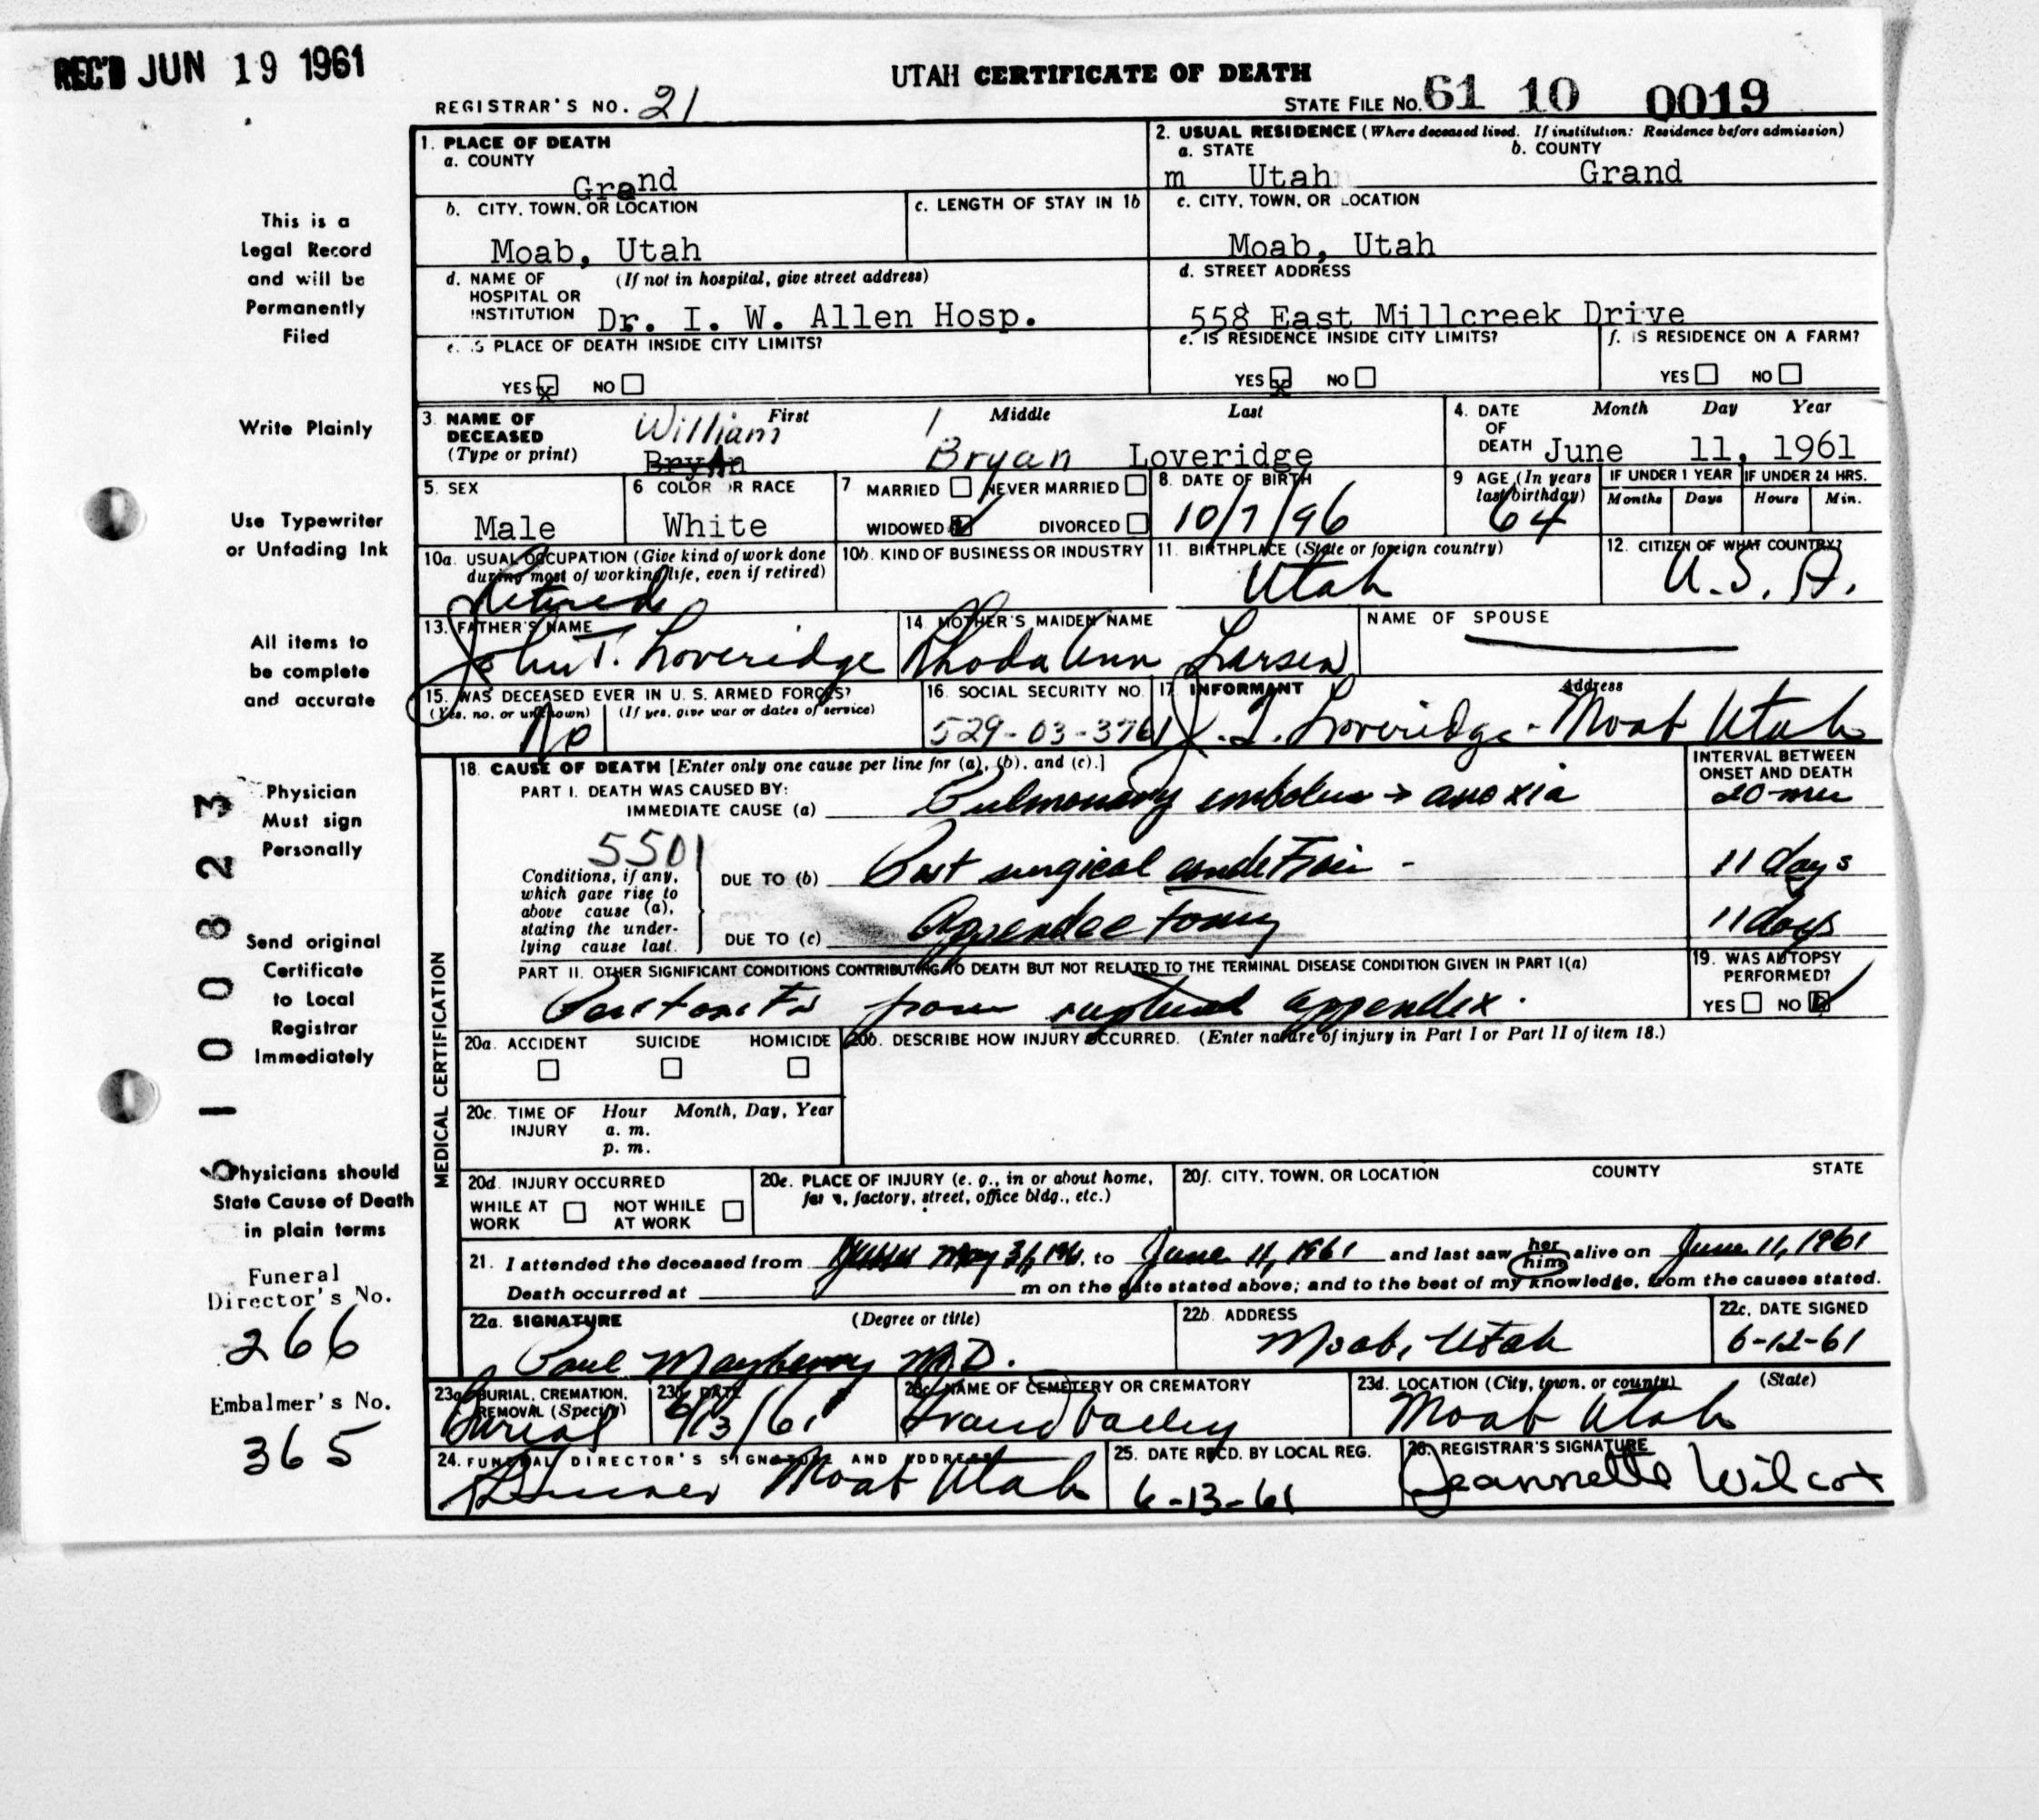 REC'D JUN 19 1961
UTAH CERTIFICATE OF DEATH
REGISTRAR'S NO. 21
STATE FILE NO. 61 10 0019
1. PLACE OF DEATH
a. COUNTY
Grand
2. USUAL RESIDENCE (Where deceased lived. If institution: Residence before admission)
a. STATE b. COUNTY
m Utah Grand
b. CITY, TOWN, OR LOCATION
Moab, Utah
c. LENGTH OF STAY IN 1b
c. CITY, TOWN, OR LOCATION
Moab, Utah
d. NAME OF (If not in hospital, give street address)
HOSPITAL OR
INSTITUTION Dr. I. W. Allen Hosp.
d. STREET ADDRESS
558 East Millcreek Drive
e. IS PLACE OF DEATH INSIDE CITY LIMITS?
YES x NO
e. IS RESIDENCE INSIDE CITY LIMITS?
YES x NO
f. IS RESIDENCE ON A FARM?
YES NO
3. NAME OF First Middle Last
DECEASED William
(Type or print) Bryan Bryan Loveridge
4. DATE Month Day Year
OF
DEATH June 11, 1961
5. SEX
Male
6 COLOR OR RACE
White
7 MARRIED NEVER MARRIED
WIDOWED DIVORCED
8. DATE OF BIRTH
10/7/96
9 AGE (In years
last birthday)
64
IF UNDER 1 YEAR IF UNDER 24 HRS.
Months Days Hours Min.
10a. USUAL OCCUPATION (Give kind of work done
during most of working life, even if retired)
Retired
10b. KIND OF BUSINESS OR INDUSTRY
11. BIRTHPLACE (State or foreign country)
Utah
12. CITIZEN OF WHAT COUNTRY?
U.S.A.
13. FATHER'S NAME
John T. Loveridge
14. MOTHER'S MAIDEN NAME
Rhoda Ann Larsen
NAME OF SPOUSE
15. WAS DECEASED EVER IN U. S. ARMED FORCES?
(Yes, no, or unknown) (If yes, give war or dates of service)
No
16. SOCIAL SECURITY NO.
529-03-3761
17. INFORMANT Address
J. T. Loveridge - Moab Utah
MEDICAL CERTIFICATION
18. CAUSE OF DEATH [Enter only one cause per line for (a), (b), and (c).]
INTERVAL BETWEEN
ONSET AND DEATH
PART I. DEATH WAS CAUSED BY:
IMMEDIATE CAUSE (a) Pulmonary embolus → anoxia 20 min
5501
Conditions, if any,
which gave rise to
above cause (a),
stating the under-
lying cause last.
DUE TO (b) Post surgical condition - 11 days
DUE TO (c) Appendectomy 11 days
PART II. OTHER SIGNIFICANT CONDITIONS CONTRIBUTING TO DEATH BUT NOT RELATED TO THE TERMINAL DISEASE CONDITION GIVEN IN PART I(a)
Peritonitis from ruptured appendix.
19. WAS AUTOPSY
PERFORMED?
YES NO
20a. ACCIDENT SUICIDE HOMICIDE
20b. DESCRIBE HOW INJURY OCCURRED. (Enter nature of injury in Part I or Part II of item 18.)
20c. TIME OF Hour Month, Day, Year
INJURY a. m.
p. m.
20d. INJURY OCCURRED
WHILE AT WORK NOT WHILE AT WORK
20e. PLACE OF INJURY (e. g., in or about home,
farm, factory, street, office bldg., etc.)
20f. CITY, TOWN, OR LOCATION COUNTY STATE
21. I attended the deceased from May 31, 1961, to June 11, 1961 and last saw her him alive on June 11, 1961
Death occurred at m on the date stated above; and to the best of my knowledge, from the causes stated.
22a. SIGNATURE (Degree or title)
Paul Mayberry M.D.
22b. ADDRESS
Moab, Utah
22c. DATE SIGNED
6-12-61
23a. BURIAL, CREMATION,
REMOVAL (Specify)
Burial
23b. DATE
6/13/61
23c. NAME OF CEMETERY OR CREMATORY
Grand Valley
23d. LOCATION (City, town, or county) (State)
Moab Utah
24. FUNERAL DIRECTOR'S SIGNATURE AND ADDRESS
Moab Utah
25. DATE RECD. BY LOCAL REG.
6-13-61
26. REGISTRAR'S SIGNATURE
Jeannette Wilcox
This is a
Legal Record
and will be
Permanently
Filed
Write Plainly
Use Typewriter
or Unfading Ink
All items to
be complete
and accurate
Physician
Must sign
Personally
Send original
Certificate
to Local
Registrar
Immediately
Physicians should
State Cause of Death
in plain terms
Funeral
Director's No.
266
Embalmer's No.
365